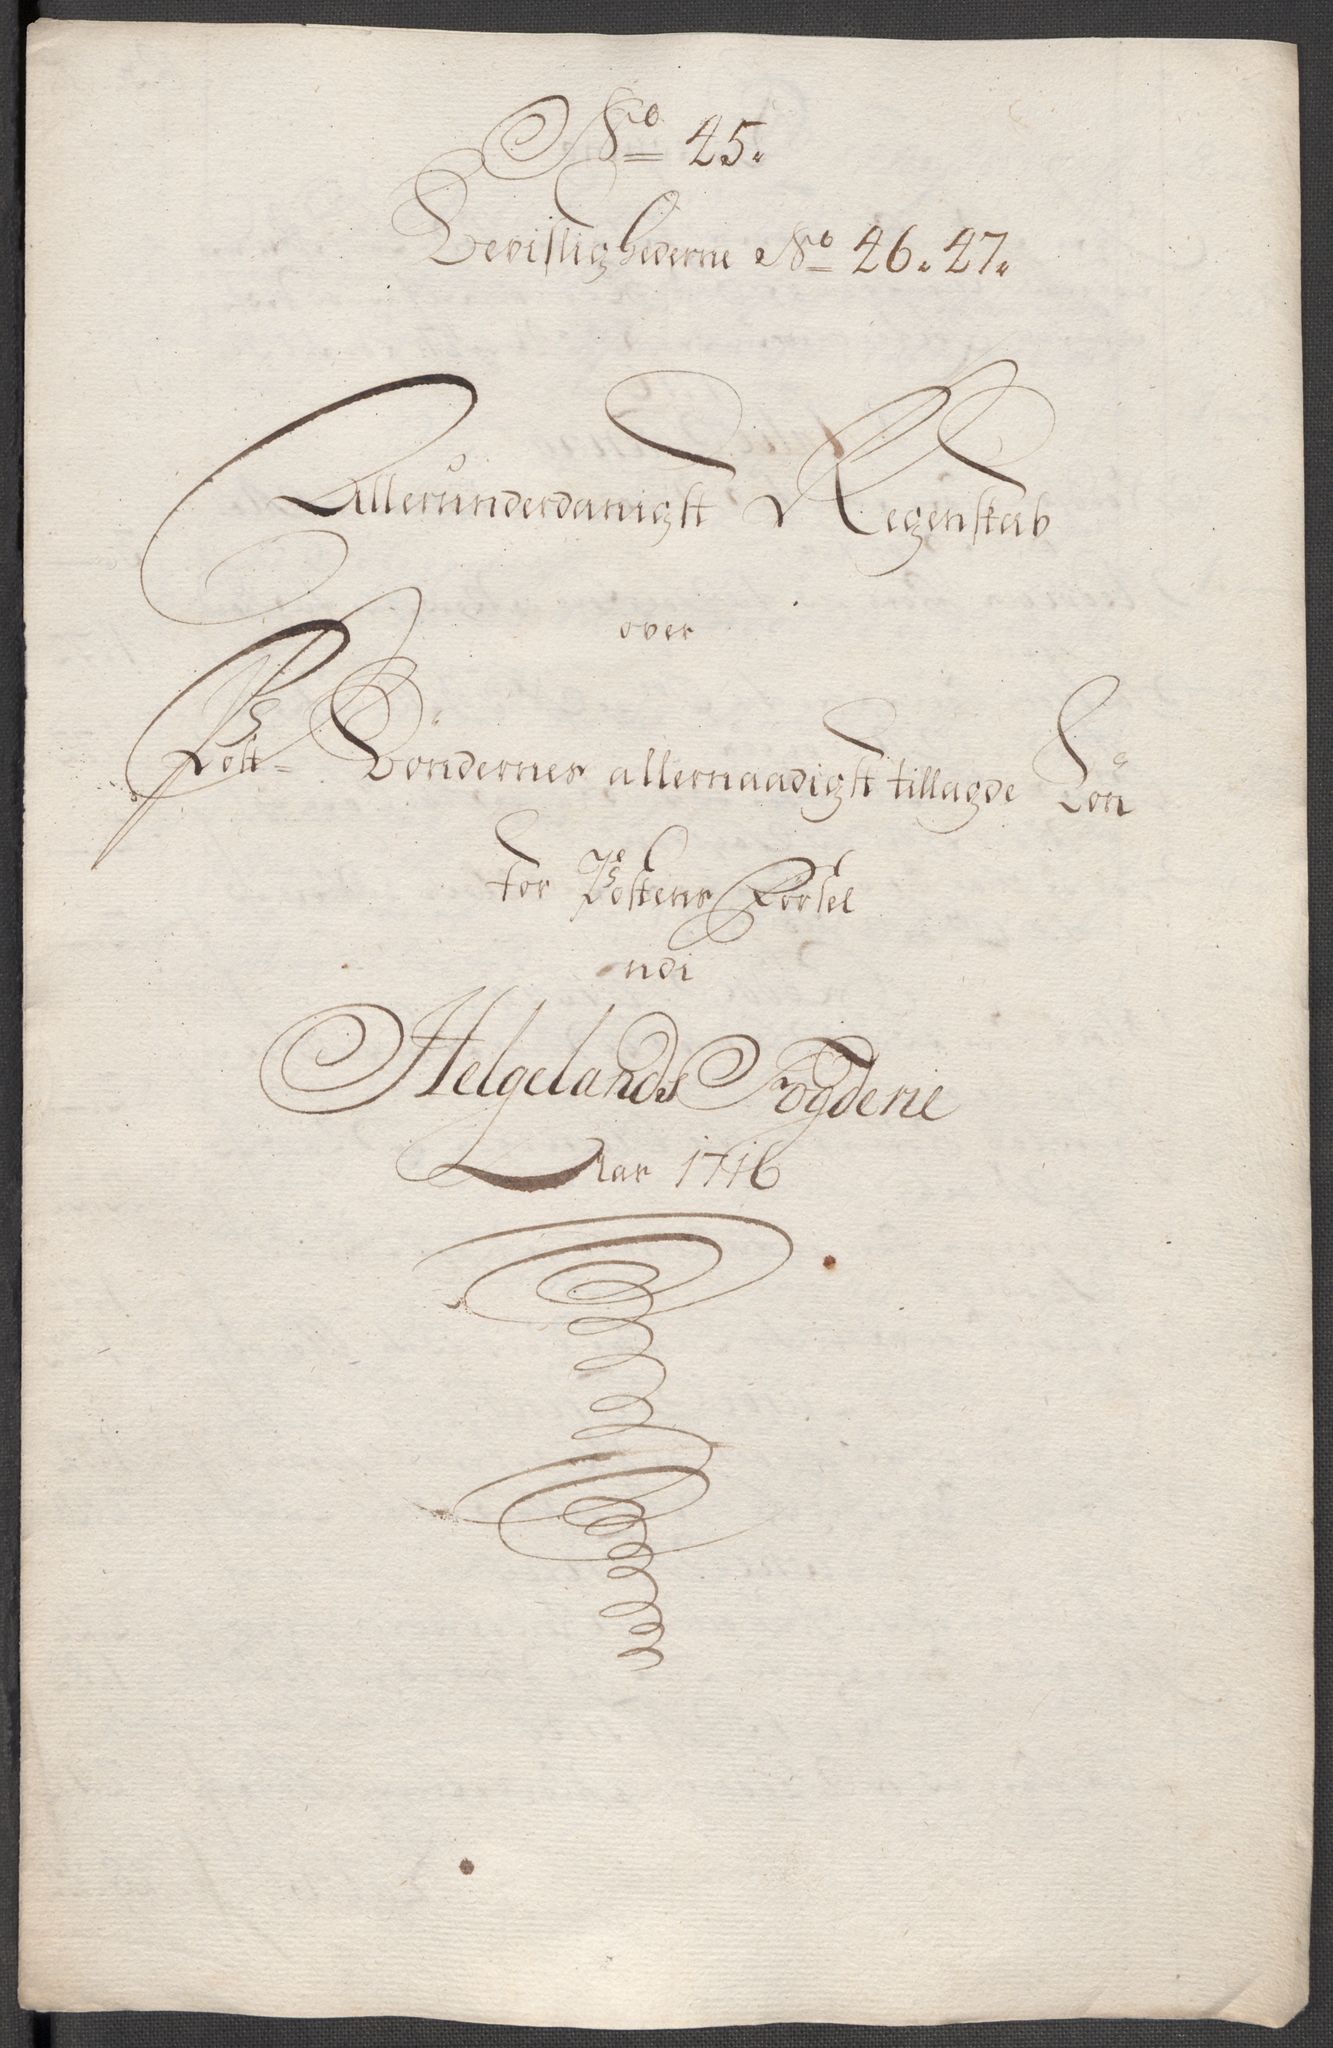 No 45.
Bevislighederne No 46. 47.
Allerunderdanigst Regenskab
over
Post-Böndernes allernaadigst tillagde Lön
for Postens Försel
udi
Helgelands Fogderie
Aar 1716